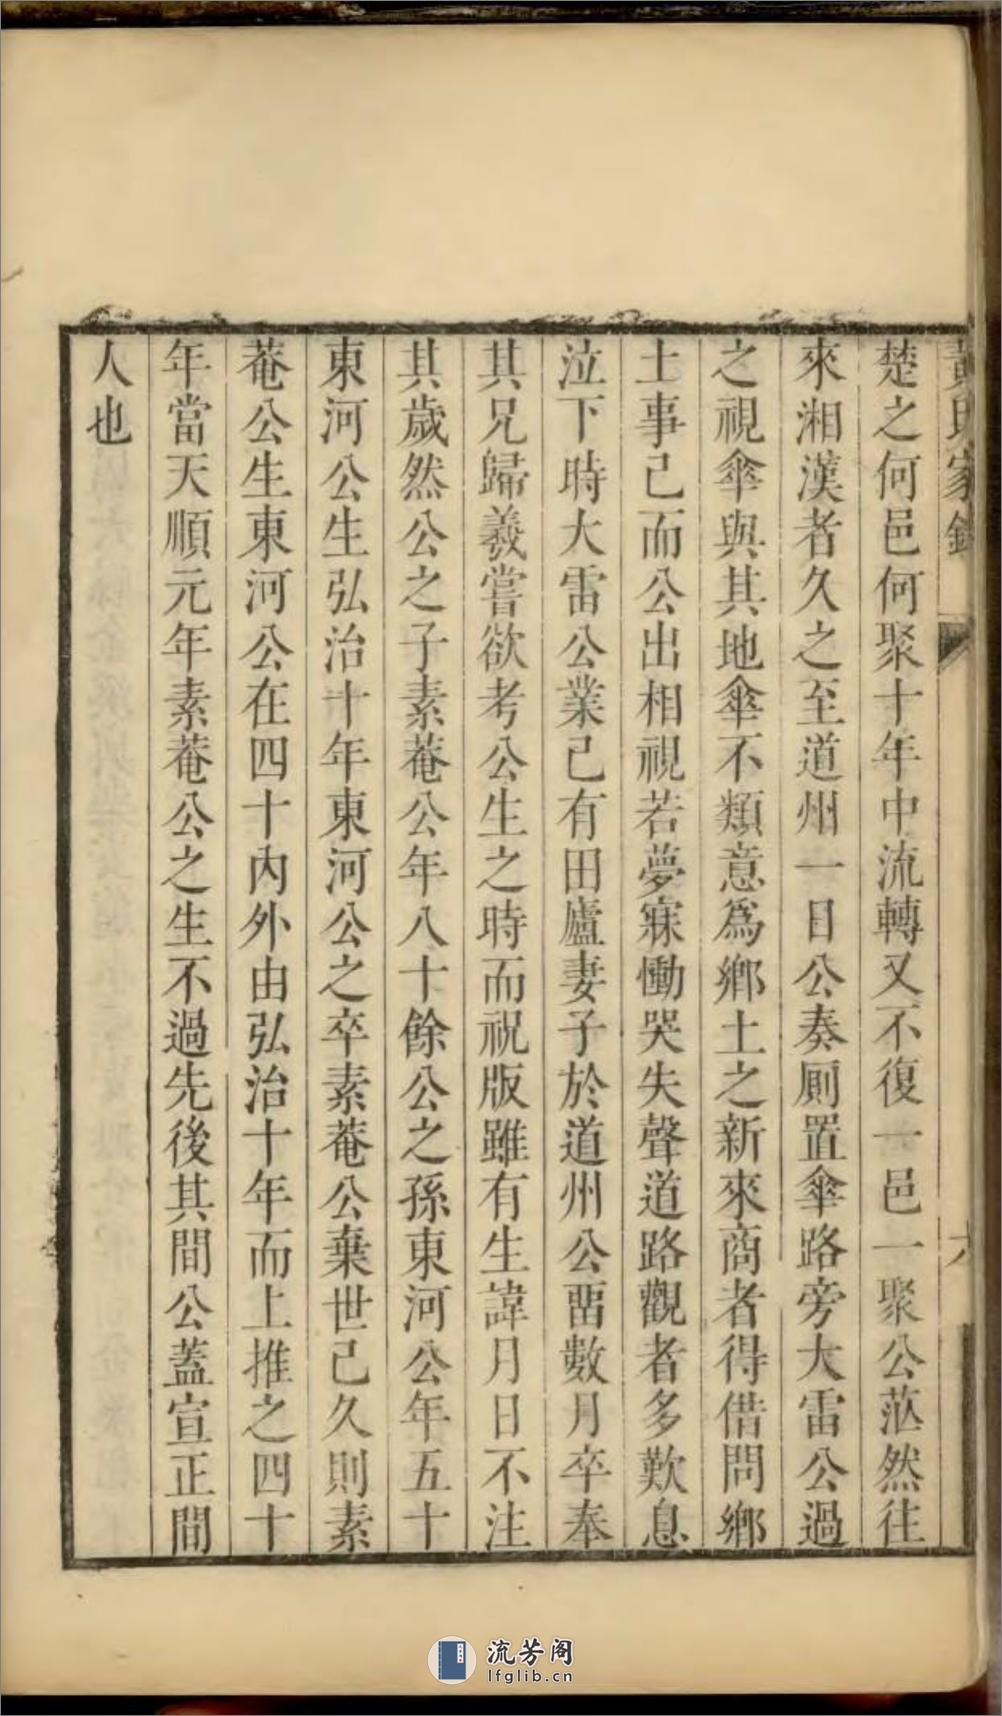 黃氏家錄
六
楚之何邑何聚十年中流轉又不復一邑一聚公茫然往
來湘漢者久之至道州一日公奏厠置傘路旁大雷公過
之視傘與其地傘不類意爲鄉土之新來商者得借問鄉
土事已而公出相視若夢寐慟哭失聲道路觀者多歎息
泣下時大雷公業已有田廬妻子於道州公畱數月卒奉
其兄歸羲嘗欲考公生之時而祝版雖有生諱月日不注
其歲然公之子素菴公年八十餘公之孫東河公年五十
東河公生弘治十年東河公之卒素菴公棄世已久則素
菴公生東河公在四十內外由弘治十年而上推之四十
年當天順元年素菴公之生不過先後其間公蓋宣正間
人也
流芳阁
lfglib.cn